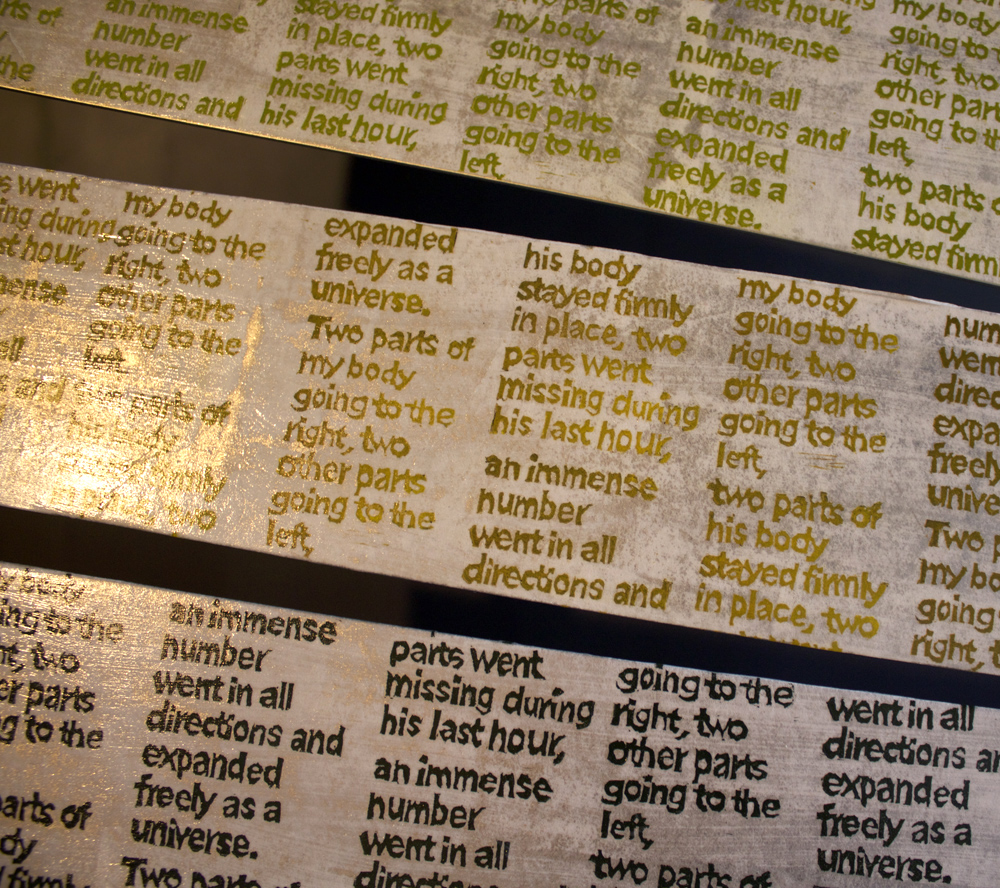 of
the
an immense
number
went in all
directions and
stayed firmly
in place, two
parts went
missing during
his last hour,
parts of
my body
going to the
right, two
other parts
going to the
left,
last hour,
an immense
number
went in all
directions and
expanded
freely as a
universe.
my body
going to the
right, two
other parts
going to the
left,
two parts of
his body
stayed firml
went
during
hour,
all
and
my body
going to the
right, two
other parts
going to the
left,
two parts of
two
expanded
freely as a
universe.
Two parts of
my body
going to the
right, two
other parts
going to the
left,
his body
stayed firmly
in place, two
parts went
missing during
his last hour,
an immense
number
went in all
directions and
my body
going to the
right, two
other parts
going to the
left,
two parts of
his body
stayed firmly
in place, two
num
went
direc
expa
freely
unive
Two p
my bo
going
right, t
body
ing to the
ht, two
er parts
g to the
parts of
dy
firmly
an immense
number
went in all
directions and
expanded
freely as a
universe.
Two parts of
parts went
missing during
his last hour,
an immense
number
went in all
directions and
going to the
right, two
other parts
going to the
left,
two parts of
went in all
directions an
expanded
freely as a
universe.